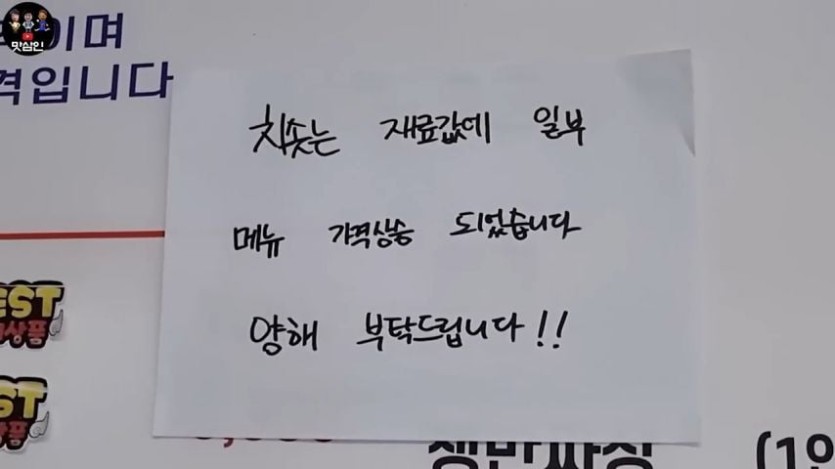 맛삼인
이며
격입니다
치솟는 재료값에 일부
메뉴 가격상승 되었습니다
양해 부탁드립니다!!
EST
상품
ST
상품
쟁반짜장 (1인